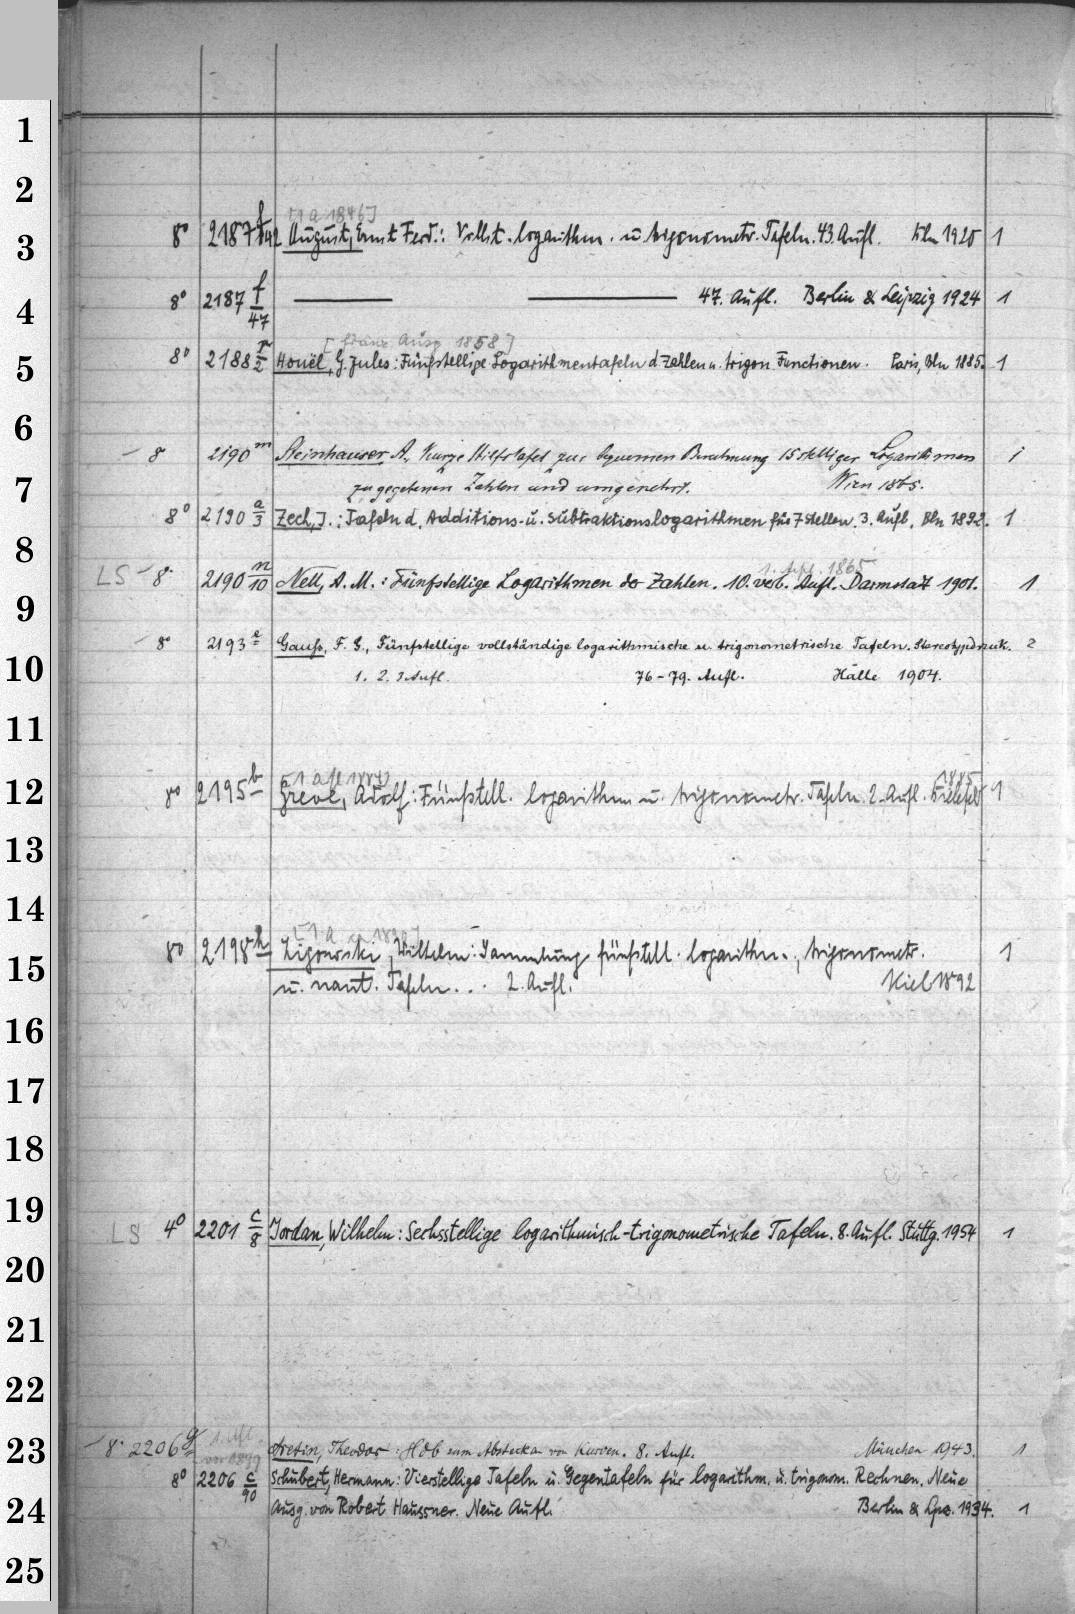 1
2
[1 A 1846]
3 8° 2187 f/42 August, Ernst Ferd.: Vollst. logarithm. u. trigonometr. Tafeln. 43. Aufl. Bln 1920 1
4 8° 2187 f/47 — — 47. Aufl. Berlin & Leipzig 1924 1
[franz. Ausg. 1858]
5 8° 2188 r/2 Houël, G. Jules: Fünfstellige Logarithmentafeln d. Zahlen u. trigon. Functionen. Paris, Bln 1885. 1
6
— 8 2190 m Steinhauser A., Kurze Hilfstafel zur bequemen Berechnung 15stelliger Logarithmen 1
7 zu gegebenen Zahlen und umgekehrt. Wien 1865.
8° 2190 a/3 Zech, J.: Tafeln d. Additions- u. Subtraktionslogarithmen für 7 Stellen. 3. Aufl. Bln 1892. 1
8
1865
LS — 8° 2190 n/10 Nell, A. M.: Fünfstellige Logarithmen der Zahlen. 10. verb. Aufl. Darmstadt 1901. 1
9
— 8° 2193 e Gauss, F. G., Fünfstellige vollständige logarithmische u. trigonometrische Tafeln. Stereotypdruck. 2
10 1. 2. 3 Aufl. 76–79. Aufl. Halle 1904.
11
1885
12 8° 2195 b Greve, Adolf: Fünfstell. logarithm. u. trigonometr. Tafeln. 2. Aufl. Bielefeld 1
13
14
15 8° 2198 h Ligowski, Wilhelm: Sammlung fünfstell. logarithm., trigonometr. 1
u. naut. Tafeln... 2. Aufl. Kiel 1892
16
17
18
19
LS 4° 2201 c/8 Jordan, Wilhelm: Sechsstellige logarithmisch-trigonometrische Tafeln. 8. Aufl. Stuttg. 1954 1
20
21
22
1. Aufl. vor 1899
23 — 8° 2206 g Aretin, Theodor: Hdb zum Abstecken von Kurven. 8. Aufl. München 1943. 1
8° 2206 c/90 Schubert, Hermann: Vierstellige Tafeln u. Gegentafeln für logarithm. u. trigonom. Rechnen. Neue
24 Ausg. von Robert Haussner. Neue Aufl. Berlin & Lpz. 1934. 1
25